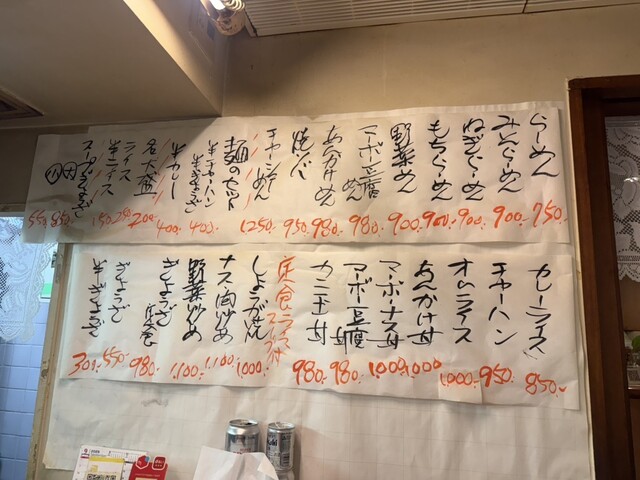 らーめん 750.
みそらーめん 900.
ねぎらーめん 900.
もちらーめん 900.
野菜めん 900.
マーボー豆腐めん 980.
あんかけめん 980.
焼ソバ 950
チャーシューめん 1250
麺のセット
半チャーハン 400.
半カレー 400.
大盛 200.
ライス 250
半ライス 150
スープぎょうざ
大 850.
小 550
カレーライス 850.
チャーハン 950.
オムライス 1000.
あんかけ丼 1000
マーボナス丼 1000
マーボ豆腐 980.
カニ玉丼 980.
定食ライス スープ付
しょうが焼 1000.
ナス肉炒め 1,100.
野菜炒め 1,100.
ぎょうざ定食 980.
ぎょうざ 550.
半ぎょうざ 300.
Asahi